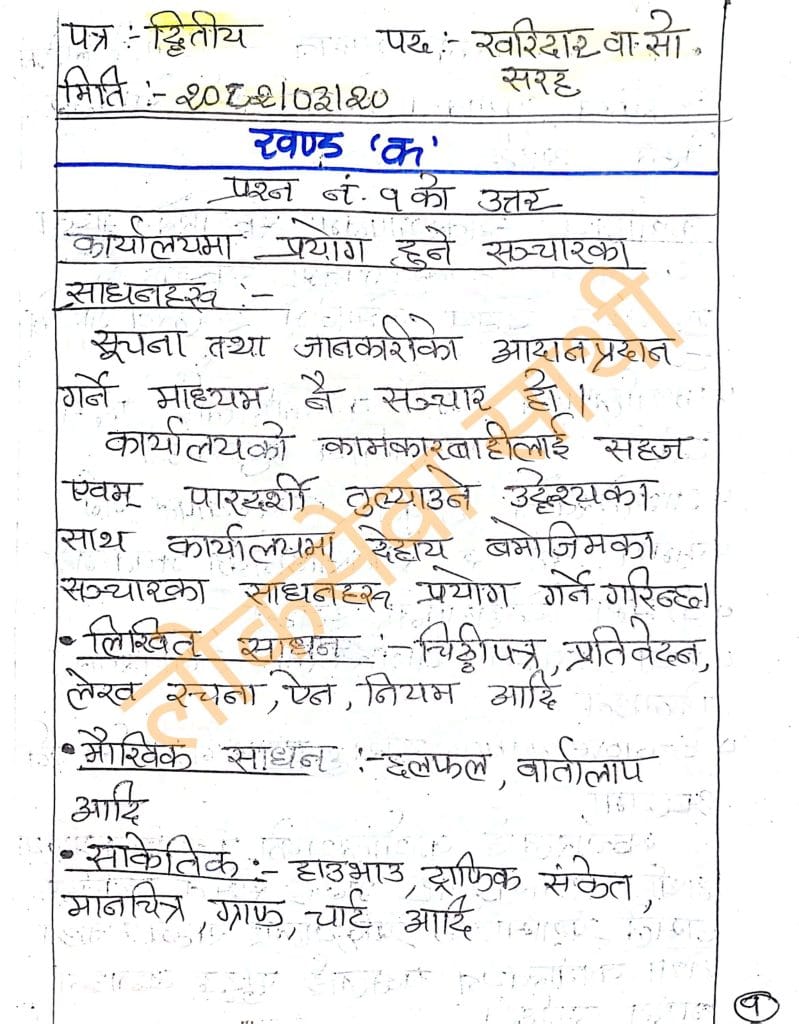 पत्र :- द्वितीय पद :- खरिदार वा सो
सरह
मिति :- २०८२/०३/२०
खण्ड 'क'
प्रश्न नं. १ को उत्तर
कार्यालयमा प्रयोग हुने सञ्चारका
साधनहरू :-
सूचना तथा जानकारीको आदानप्रदान
गर्ने माध्यम नै सञ्चार हो।
कार्यालयको कामकारबाहीलाई सहज
एवम् पारदर्शी तुल्याउने उद्देश्यका
साथ कार्यालयमा देहाय बमोजिमका
सञ्चारका साधनहरू प्रयोग गर्ने गरिन्छ।
• लिखित साधन :- चिठ्ठीपत्र, प्रतिवेदन,
लेख रचना, ऐन, नियम आदि
• मौखिक साधन :- छलफल, वार्तालाप
आदि
• सांकेतिक :- हाउभाउ, ट्राफिक संकेत,
मानचित्र, ग्राफ, चार्ट आदि
१
लोकसेवा साथी